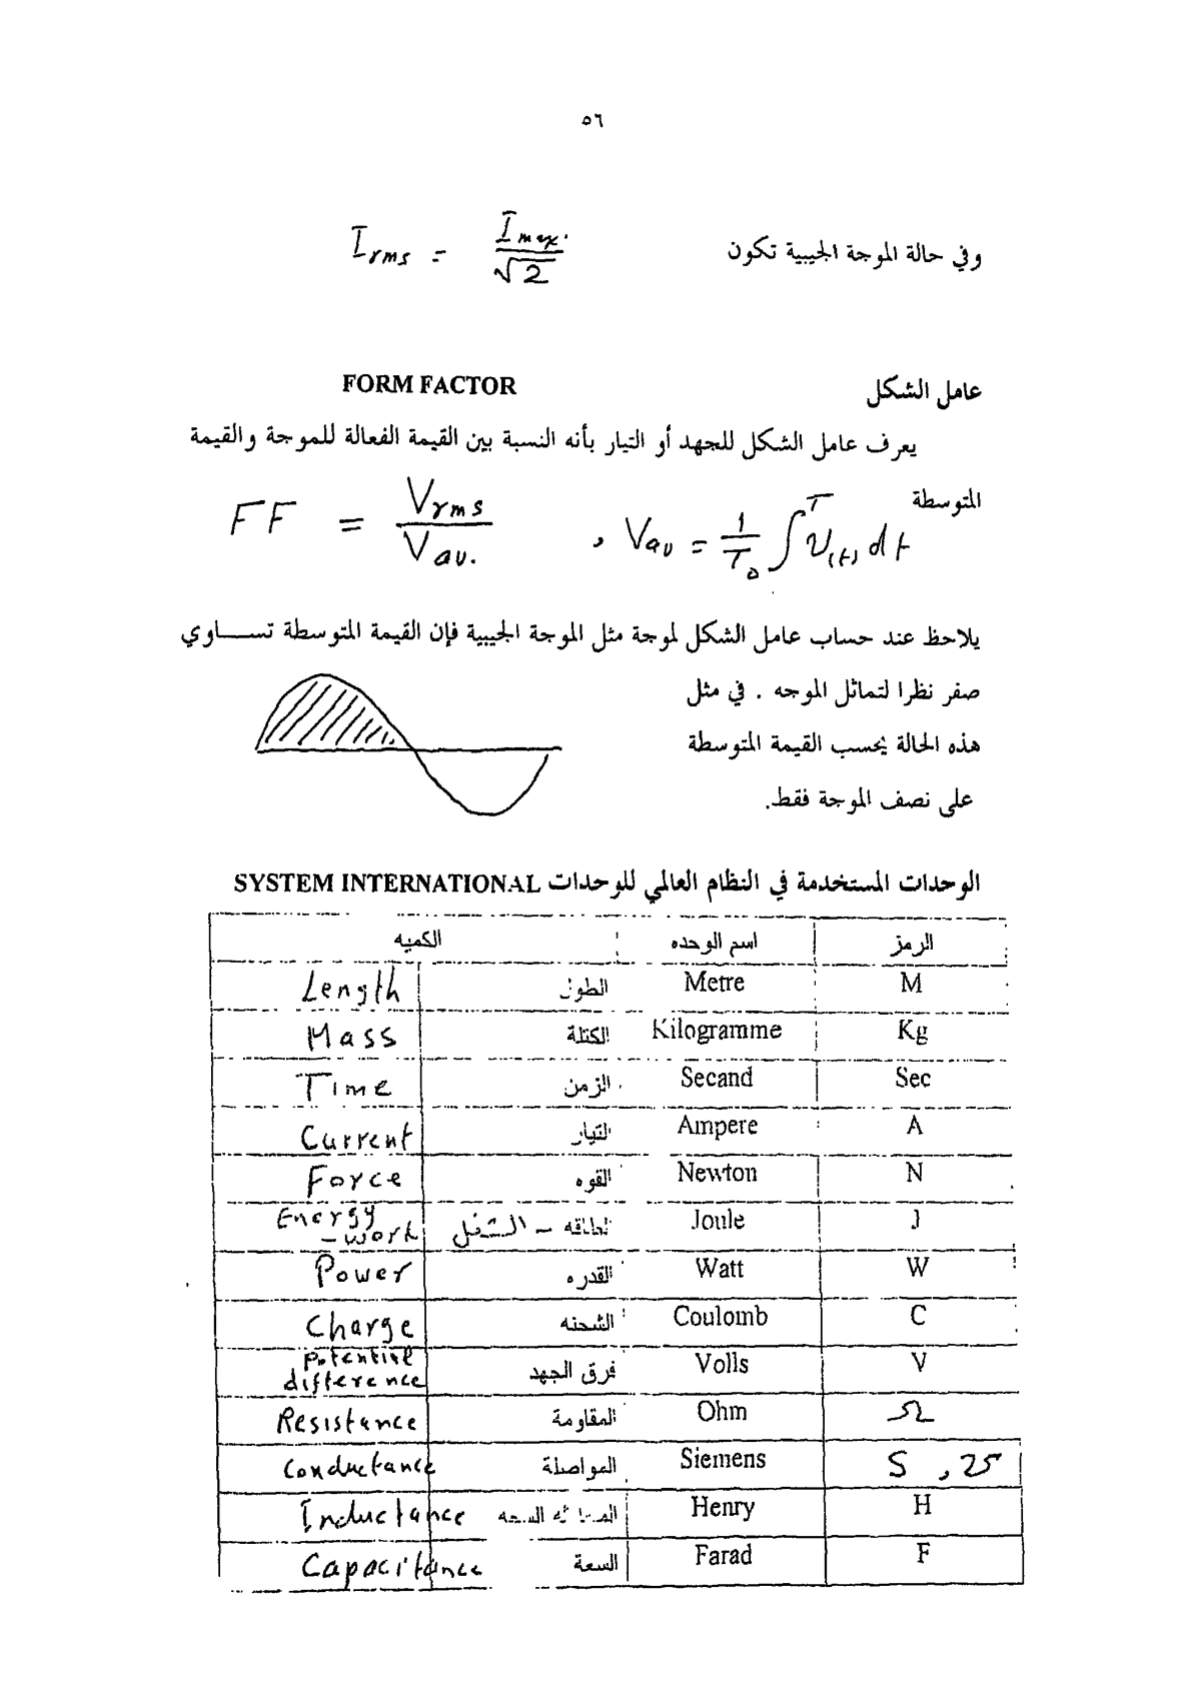 ٥٦
وفي حالة الموجة الجيبية تكون I rms = I max. / √2
عامل الشكل FORM FACTOR
يعرف عامل الشكل للجهد أو التيار بأنه النسبة بين القيمة الفعالة للموجة والقيمة
المتوسطة
FF = V rms / V av. , V av = 1/T ∫₀ᵀ v(t) dt
يلاحظ عند حساب عامل الشكل لموجة مثل الموجة الجيبية فإن القيمة المتوسطة تساوي
صفر نظرا لتماثل الموجه . في مثل
هذه الحالة يحسب القيمة المتوسطة
على نصف الموجة فقط.
الوحدات المستخدمة في النظام العالمي للوحدات SYSTEM INTERNATIONAL
الكميه اسم الوحده الرمز
Length الطول Metre M
Mass الكتلة Kilogramme Kg
Time الزمن Secand Sec
Current التيار Ampere A
Force القوه Newton N
Energy - work الطاقه - الشغل Joule J
Power القدره Watt W
Charge الشحنه Coulomb C
potential difference فرق الجهد Volls V
Resistance المقاومة Ohm Ω
Conductance المواصلة Siemens S ,
Inductance Henry H
Capacitance السعة Farad F